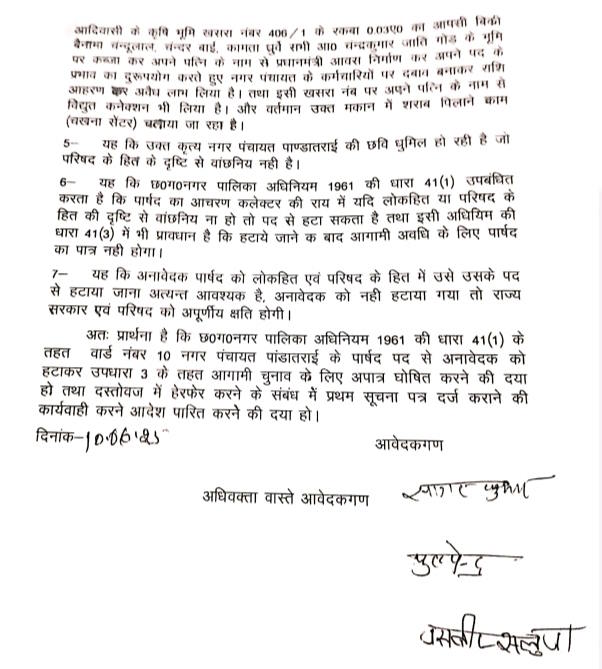 आदिवासी के कृषि भूमि खसरा नंबर 406/1 के रकबा 0.03ए0 का आपसी बिकी
बैनामा चन्दूलाल, चंदर बाई, कामता धुर्वे सभी आ0 चन्द्रकुमार जाति गोड के भूमि
पर कब्जा कर अपने पत्नि के नाम से प्रधानमंत्री आवास निर्माण कर अपने पद के
प्रभाव का दुरूपयोग करते हुए नगर पंचायत के कर्मचारियों पर दबाव बनाकर राशि
आहरण कर अवैध लाभ लिया है। तथा इसी खसरा नंब पर अपने पत्नि के नाम से
विद्युत कनेक्शन भी लिया है। और वर्तमान उक्त मकान में शराब पिलाने काम
(चखना सेंटर) चलाया जा रहा है।
5— यह कि उक्त कृत्य नगर पंचायत पाण्डातराई की छवि धुमिल हो रही है जो
परिषद के हित के दृष्टि से वांछनिय नही है।
6— यह कि छ0ग0नगर पालिका अधिनियम 1961 की धारा 41(1) उपबंधित
करता है कि पार्षद का आचरण कलेक्टर की राय में यदि लोकहित या परिषद के
हित की दृष्टि से वांछनिय ना हो तो पद से हटा सकता है तथा इसी अधियिम की
धारा 41(3) में भी प्रावधान है कि हटाये जाने क बाद आगामी अवधि के लिए पार्षद
का पात्र नही होगा।
7— यह कि अनावेदक पार्षद को लोकहित एवं परिषद के हित में उसे उसके पद
से हटाया जाना अत्यन्त आवश्यक है, अनावेदक को नही हटाया गया तो राज्य
सरकार एवं परिषद को अपूर्णीय क्षति होगी।
अतः प्रार्थना है कि छ0ग0नगर पालिका अधिनियम 1961 की धारा 41(1) के
तहत वार्ड नंबर 10 नगर पंचायत पांडातराई के पार्षद पद से अनावेदक को
हटाकर उपधारा 3 के तहत आगामी चुनाव के लिए अपात्र घोषित करने की दया
हो तथा दस्तोवज में हेरफेर करने के संबंध में प्रथम सूचना पत्र दर्ज कराने की
कार्यवाही करने आदेश पारित करने की दया हो।
दिनांक—10.06.25
आवेदकगण
अधिवक्ता वास्ते आवेदकगण